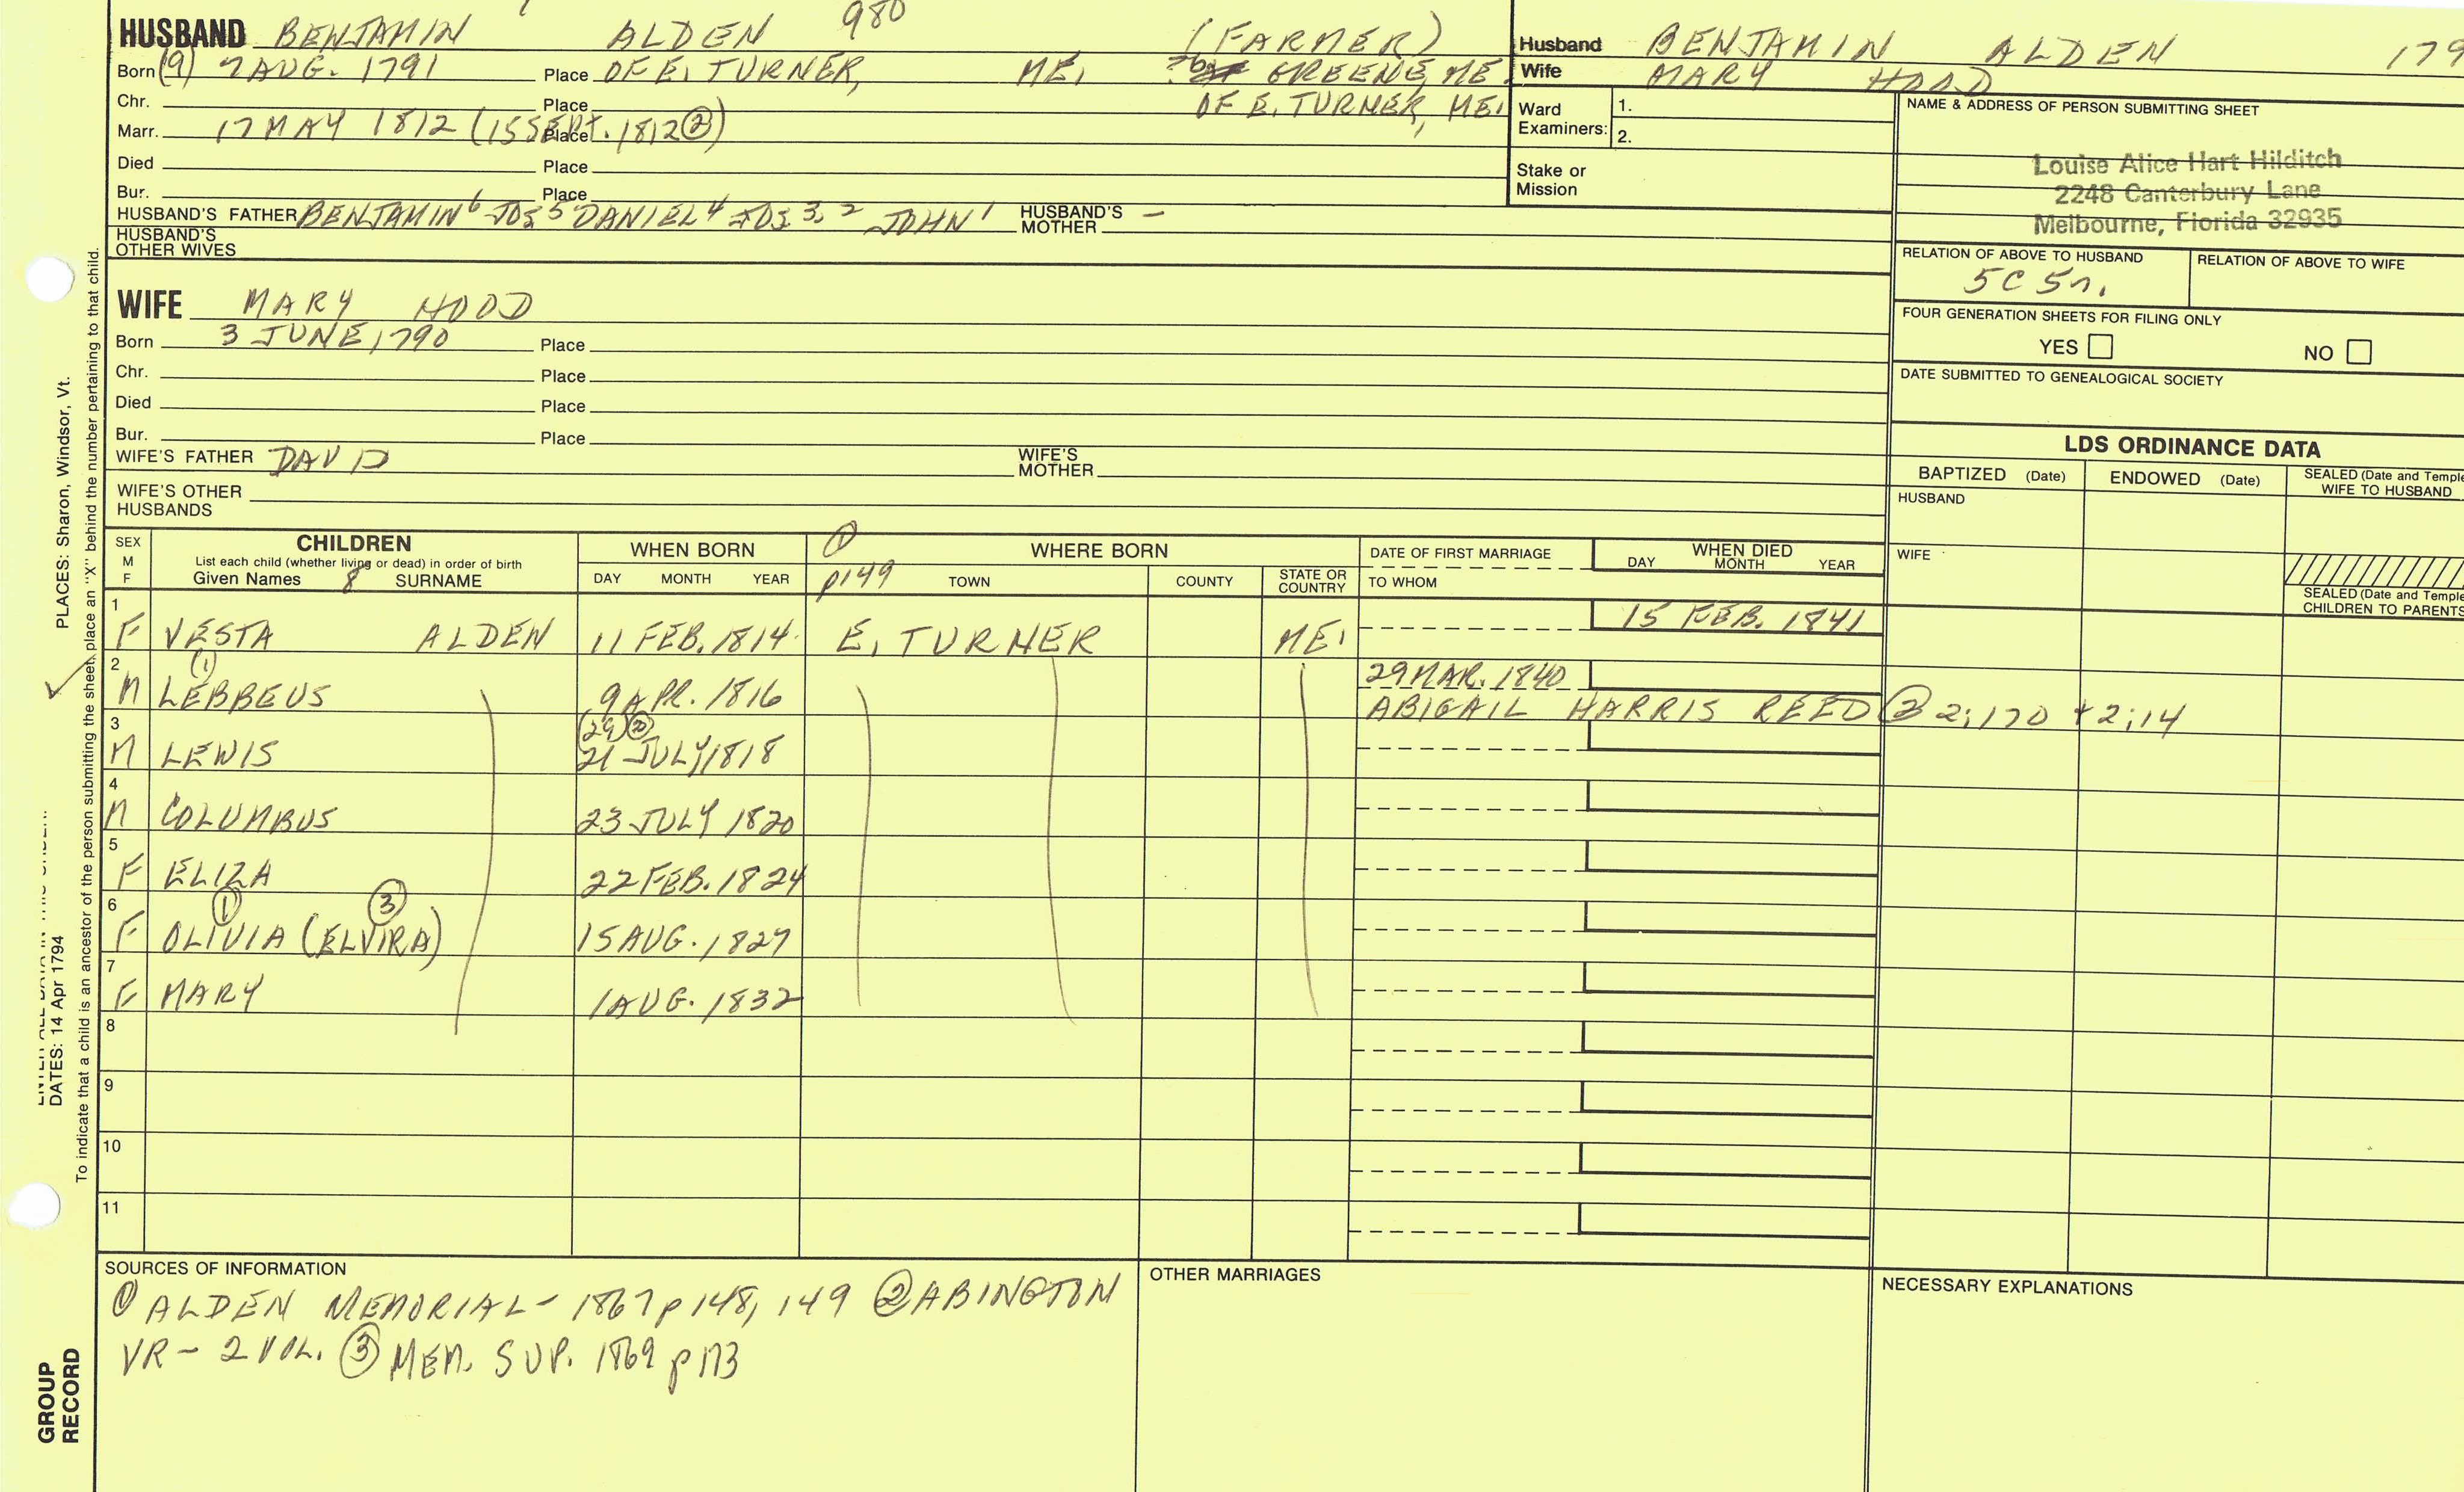 HUSBAND BENJAMIN ALDEN 980 (FARMER)
Born (9) 7 AUG. 1791 Place OF E. TURNER, ME. GREENE, ME.
Chr. Place OF E. TURNER, ME.
Marr. 17 MAY 1812 (15 SEPT. 1812 ②) Place
Died Place
Bur. Place
HUSBAND'S FATHER BENJAMIN 6 JOS 5 DANIEL 4 JOS. 3, 2 JOHN 1 HUSBAND'S MOTHER –
HUSBAND'S OTHER WIVES
WIFE MARY HOOD
Born 3 JUNE, 1790 Place
Chr. Place
Died Place
Bur. Place
WIFE'S FATHER DAVID WIFE'S MOTHER
WIFE'S OTHER HUSBANDS
Husband BENJAMIN ALDEN 179
Wife MARY HOOD
Ward Examiners: 1.
2.
Stake or Mission
NAME & ADDRESS OF PERSON SUBMITTING SHEET
Louise Alice Hart Hilditch
2248 Canterbury Lane
Melbourne, Florida 32935
RELATION OF ABOVE TO HUSBAND RELATION OF ABOVE TO WIFE
5C 5r.
FOUR GENERATION SHEETS FOR FILING ONLY
YES NO
DATE SUBMITTED TO GENEALOGICAL SOCIETY
LDS ORDINANCE DATA
BAPTIZED (Date) ENDOWED (Date) SEALED (Date and Temple
WIFE TO HUSBAND
HUSBAND
WIFE
SEALED (Date and Temple
CHILDREN TO PARENTS
SEX M F CHILDREN WHEN BORN ① WHERE BORN DATE OF FIRST MARRIAGE WHEN DIED
List each child (whether living or dead) in order of birth
Given Names 8 SURNAME DAY MONTH YEAR p149 TOWN COUNTY STATE OR COUNTRY TO WHOM DAY MONTH YEAR
1 F VESTA ALDEN 11 FEB. 1814 E. TURNER ME. 15 FEB. 1841
(1)
2 M LEBBEUS 9 APR. 1816 29 MAR. 1840
ABIGAIL HARRIS REED ② 2;170 + 2;14
(29) ②
3 M LEWIS 21 JULY 1818
4 M COLUMBUS 23 JULY 1820
5 F ELIZA 22 FEB. 1824
① ③
6 F OLIVIA (ELVIRA) 15 AUG. 1827
7 F MARY 1 AUG. 1832
8
9
10
11
SOURCES OF INFORMATION
① ALDEN MEMORIAL – 1867 p 148, 149 ② ABINGTON
VR – 2 VOL. ③ MEM. SUP. 1869 p 173
OTHER MARRIAGES
NECESSARY EXPLANATIONS
PLACES: Sharon, Windsor, Vt.
DATES: 14 Apr 1794
To indicate that a child is an ancestor of the person submitting the sheet, place an "X" behind the number pertaining to that child.
GROUP
RECORD